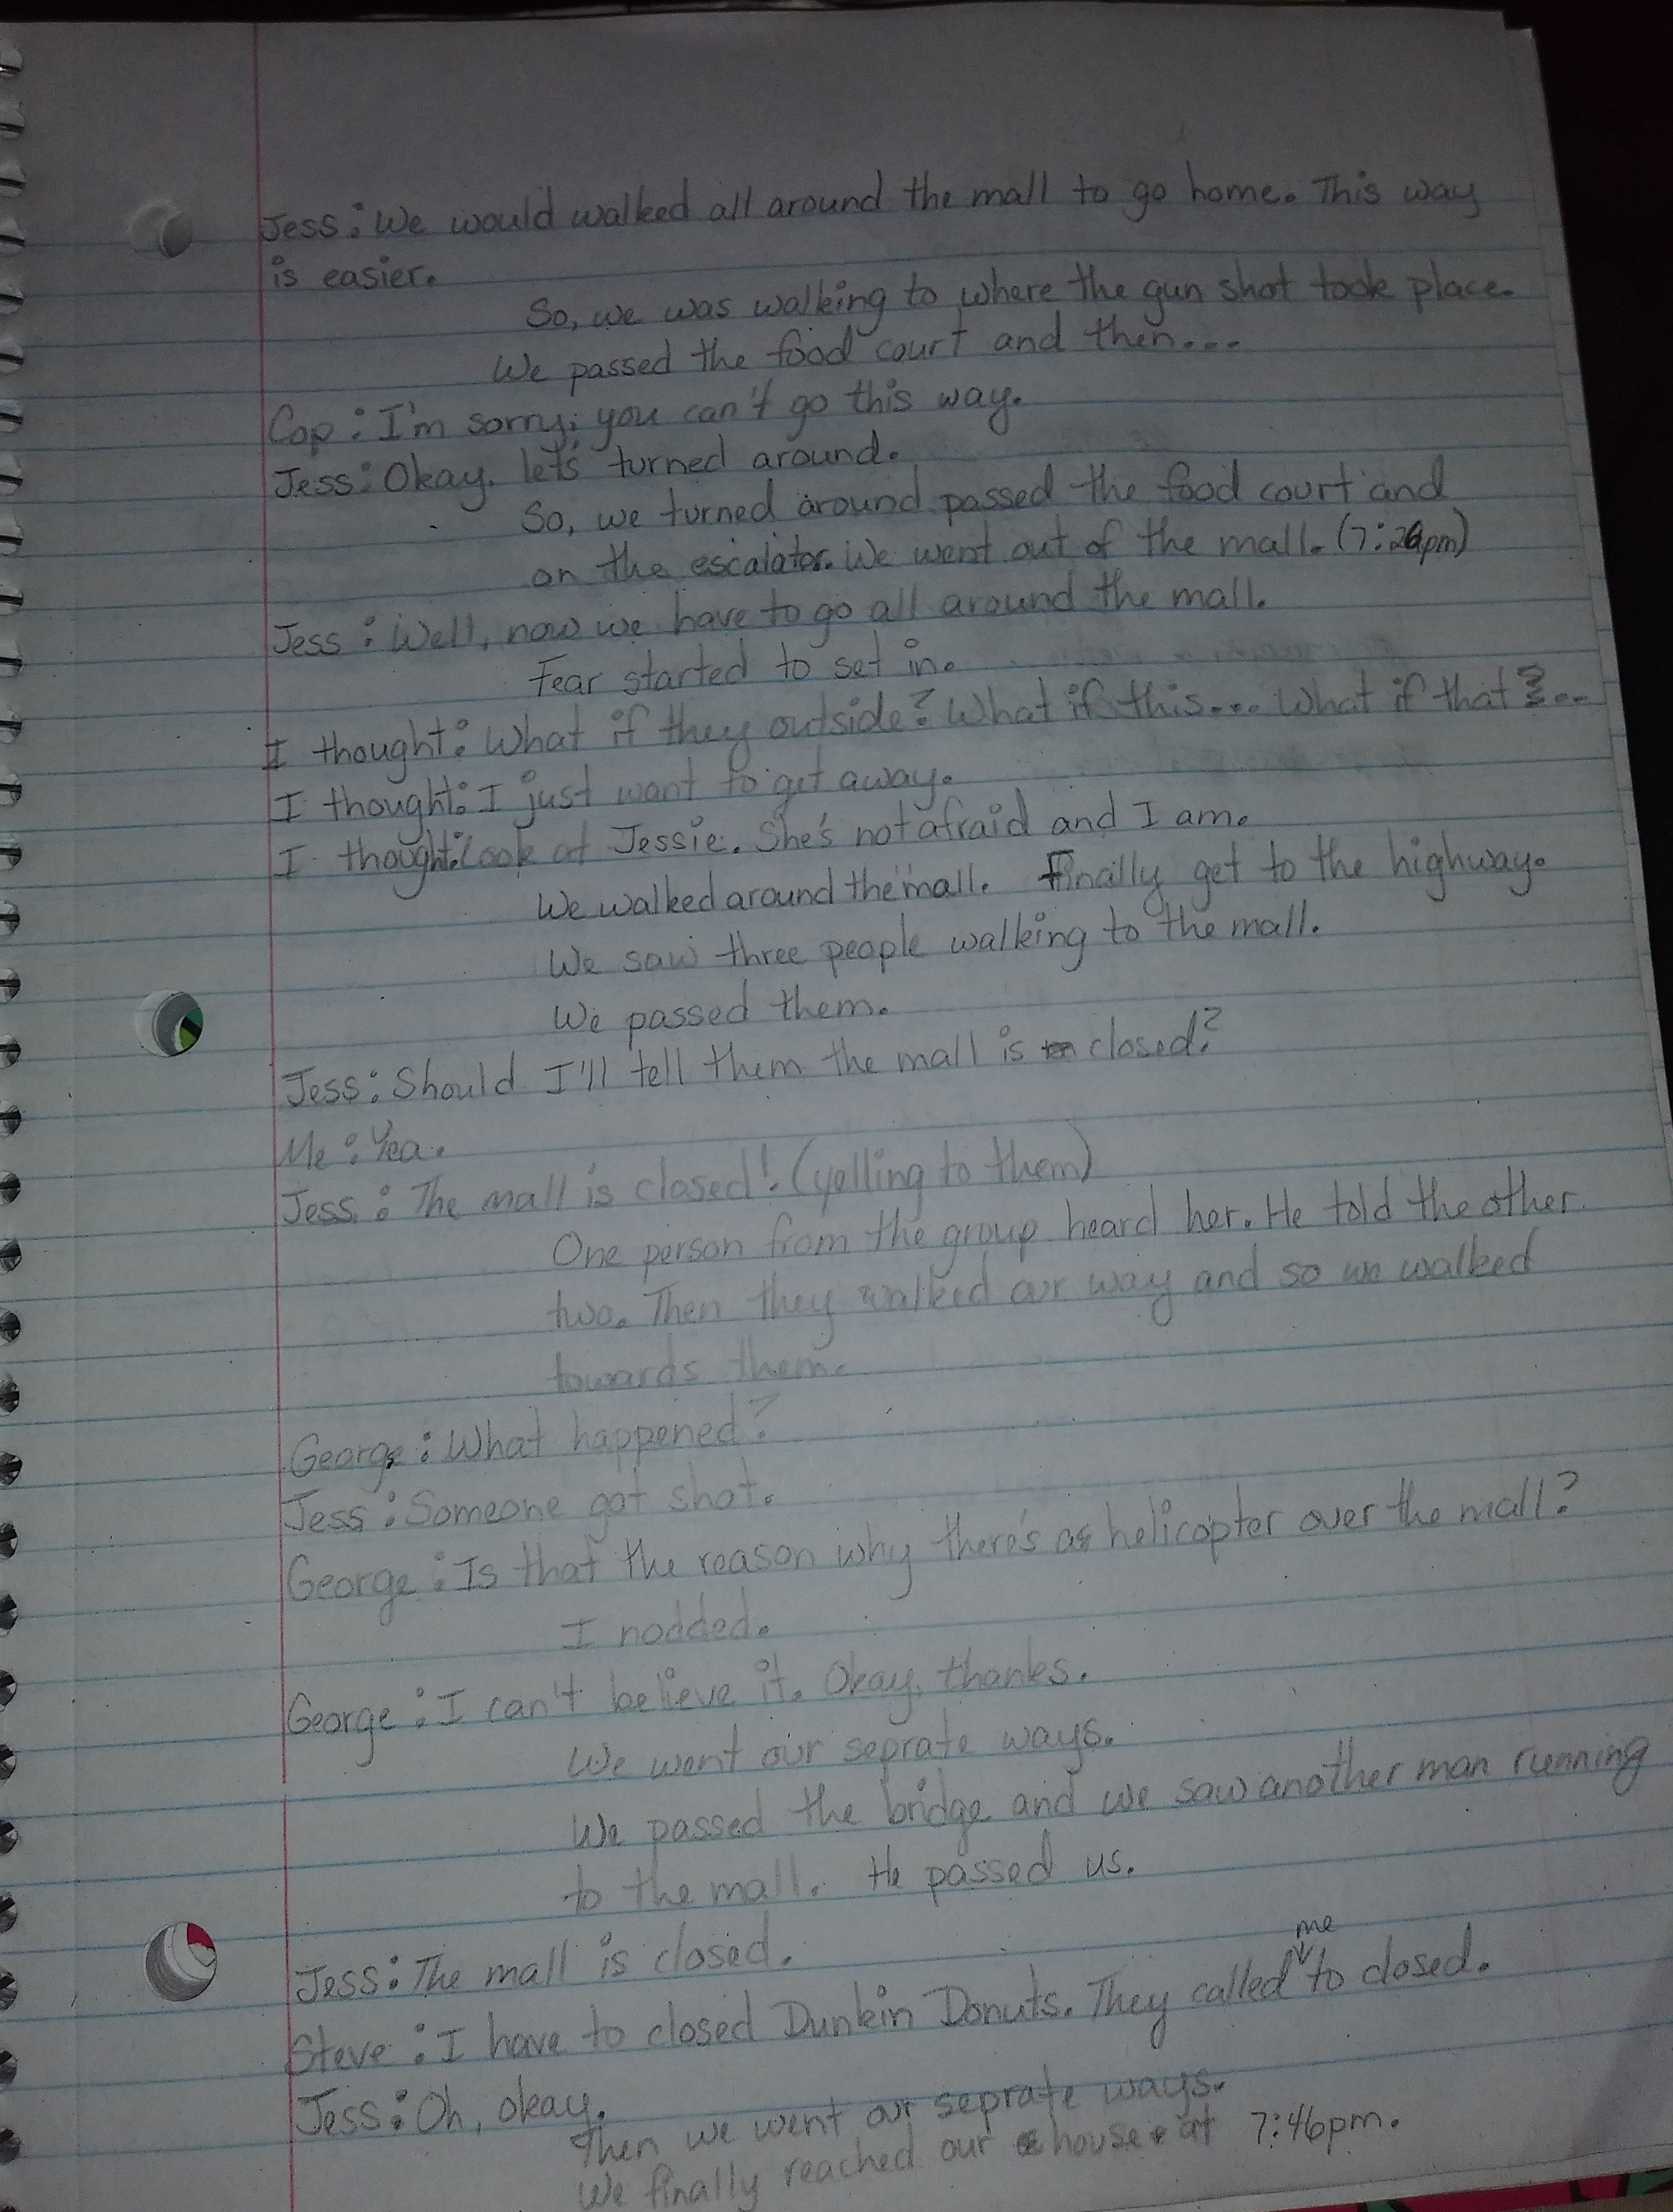 Jess: We would walked all around the mall to go home. This way
is easier.
So, we was walking to where the gun shot took place.
We passed the food court and then...
Cop: I'm sorry, you can't go this way.
Jess: Okay. let's turned around.
So, we turned around passed the food court and
on the escalator. We went out of the mall. (7:26pm)
Jess: Well, now we have to go all around the mall.
Fear started to set in.
I thought: What if they outside? What if this... What if that?...
I thought: I just want to get away.
I thought: Look at Jessie. She's not afraid and I am.
We walked around the mall. Finally get to the highway.
We saw three people walking to the mall.
We passed them.
Jess: Should I'll tell them the mall is closed?
Me: Yea.
Jess: The mall is closed! (yelling to them)
One person from the group heard her. He told the other
two. Then they walked our way and so we walked
towards them.
George: What happened?
Jess: Someone got shot.
George: Is that the reason why there's a helicopter over the mall?
I nodded.
George: I can't believe it. Okay, thanks.
We went our seprate ways.
We passed the bridge and we saw another man running
to the mall. He passed us.
Jess: The mall is closed.
Steve: I have to closed Dunkin Donuts. They called me to closed.
Jess: Oh, okay.
Then we went our seprate ways.
We finally reached our house at 7:46pm.